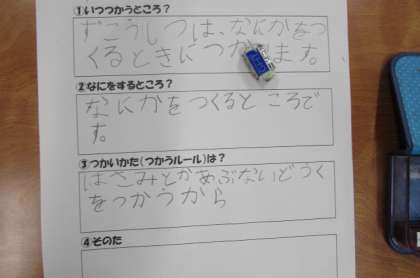 ①いつつかうところ？
ずこうしつは、なにかをつ
くるときにつかいます。
②なにをするところ？
なにかをつくるところで
す。
③つかいかた(つかうルール)は？
はさみとかあぶないどうぐ
をつかうから
④そのた